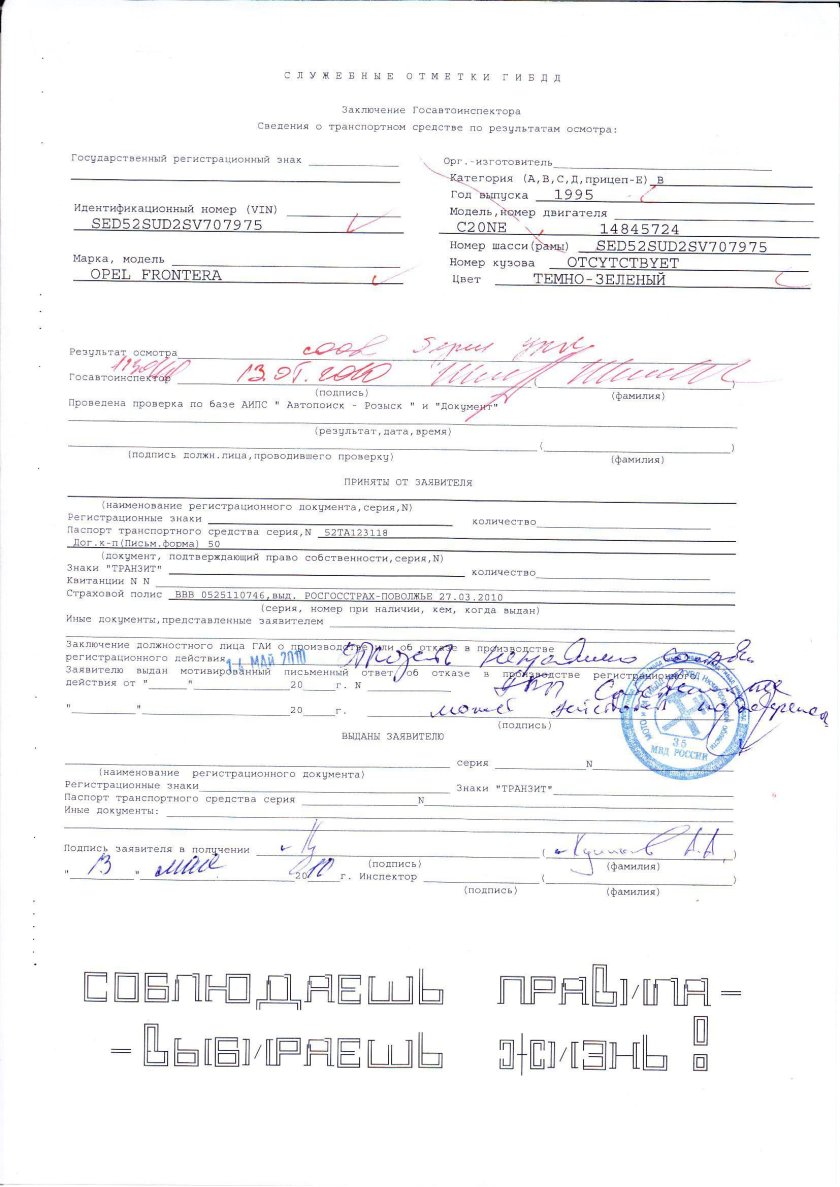 СЛУЖЕБНЫЕ ОТМЕТКИ ГИБДД
Заключение Госавтоинспектора
Сведения о транспортном средстве по результатам осмотра:
Государственный регистрационный знак
Орг.-изготовитель
Категория (А,В,С,Д,прицеп-Е) В
Год выпуска 1995
Идентификационный номер (VIN)
SED52SUD2SV707975
Модель,номер двигателя
C20NE 14845724
Номер шасси(рамы) SED52SUD2SV707975
Марка, модель
OPEL FRONTERA
Номер кузова ОТСУТСТВУЕТ
Цвет ТЕМНО-ЗЕЛЕНЫЙ
Результат осмотра
Госавтоинспектор ( )
(подпись) (фамилия)
Проведена проверка по базе АИПС " Автопоиск - Розыск " и "Документ"
(результат,дата,время)
( )
(подпись должн.лица,проводившего проверку) (фамилия)
ПРИНЯТЫ ОТ ЗАЯВИТЕЛЯ
(наименование регистрационного документа,серия,N)
Регистрационные знаки количество
Паспорт транспортного средства серия,N 52ТА123118
Дог.к-п(Письм.форма) 50
(документ, подтверждающий право собственности,серия,N)
Знаки "ТРАНЗИТ" количество
Квитанции N N
Страховой полис ВВВ 0525110746,выд. РОСГОССТРАХ-ПОВОЛЖЬЕ 27.03.2010
(серия, номер при наличии, кем, когда выдан)
Иные документы,представленные заявителем
Заключение должностного лица ГАИ о производстве или об отказе в производстве
регистрационного действия МАЙ 2010
Заявителю выдан мотивированный письменный ответ об отказе в производстве регистрационного
действия от " " 20 г. N
" " 20 г.
(подпись)
35
МВД РОССИИ
ВЫДАНЫ ЗАЯВИТЕЛЮ
серия N
(наименование регистрационного документа)
Регистрационные знаки Знаки "ТРАНЗИТ"
Паспорт транспортного средства серия N
Иные документы:
Подпись заявителя в получении ( )
(подпись) (фамилия)
" 13 " мая 2010 г. Инспектор ( )
(подпись) (фамилия)
СОБЛЮДАЕШЬ ПРАВИЛА -
- ВЫБИРАЕШЬ ЖИЗНЬ !